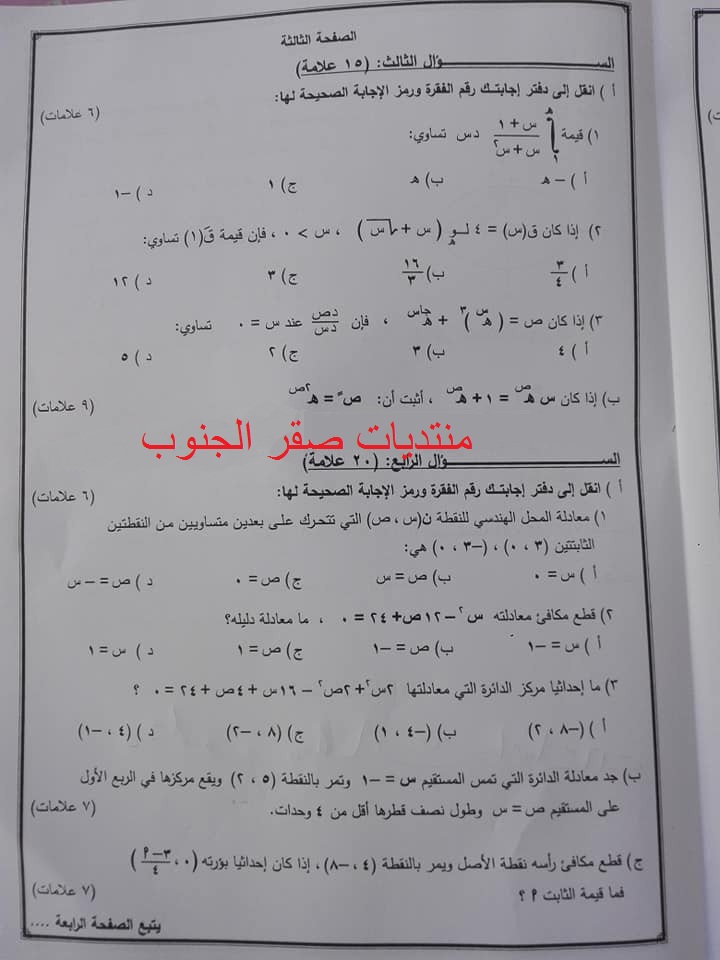 الصفحة الثالثة
الســـــــؤال الثالث: (١٥ علامة)
أ ) انقل إلى دفتر إجابتك رقم الفقرة ورمز الإجابة الصحيحة لها: (٦ علامات)
١) قيمة ∫₁^هـ (س + ١)/(س + س٢) دس تساوي:
أ ) – هـ ب) هـ ج) ١ د ) –١
٢) إذا كان ق(س) = ٤ لــوهـ (س + √س) ، س > ٠ ، فإن قيمة قَ(١) تساوي:
أ ) ٣/٤ ب) ١٦/٣ ج) ٣ د ) ١٢
٣) إذا كان ص = (هـ^س)^٣ + هـ^جاس ، فإن دص/دس عند س = ٠ تساوي:
أ ) ٤ ب) ٣ ج) ٢ د ) ٥
ب) إذا كان س هـ^ص = ١ + هـ^ص ، أثبت أن: صً = هـ^–٢ص (٩ علامات)
منتديات صقر الجنوب
الســـــــؤال الرابع: (٢٠ علامة)
أ ) انقل إلى دفتر إجابتك رقم الفقرة ورمز الإجابة الصحيحة لها: (٦ علامات)
١) معادلة المحل الهندسي للنقطة ن(س ، ص) التي تتحرك على بعدين متساويين من النقطتين
الثابتتين (٣ ، ٠) ، (–٣ ، ٠) هي:
أ ) س = ٠ ب) ص = س ج) ص = ٠ د ) ص = – س
٢) قطع مكافئ معادلته س٢ – ١٢ص + ٢٤ = ٠ ، ما معادلة دليله؟
أ ) س = –١ ب) ص = –١ ج) ص = ١ د ) س = ١
٣) ما إحداثيا مركز الدائرة التي معادلتها ٢س٢ + ٢ص٢ – ١٦س + ٤ص + ٢٤ = ٠ ؟
أ ) (–٨ ، ٢) ب) (–٤ ، ١) ج) (٨ ، –٢) د ) (٤ ، –١)
ب) جد معادلة الدائرة التي تمس المستقيم س = –١ وتمر بالنقطة (٥ ، ٢) ويقع مركزها في الربع الأول
على المستقيم ص = س وطول نصف قطرها أقل من ٤ وحدات. (٧ علامات)
ج) قطع مكافئ رأسه نقطة الأصل ويمر بالنقطة (٤ ، –٨) ، إذا كان إحداثيا بؤرته (٠ ، (٣ – م)/٤)
فما قيمة الثابت م ؟ (٧ علامات)
يتبع الصفحة الرابعة ....